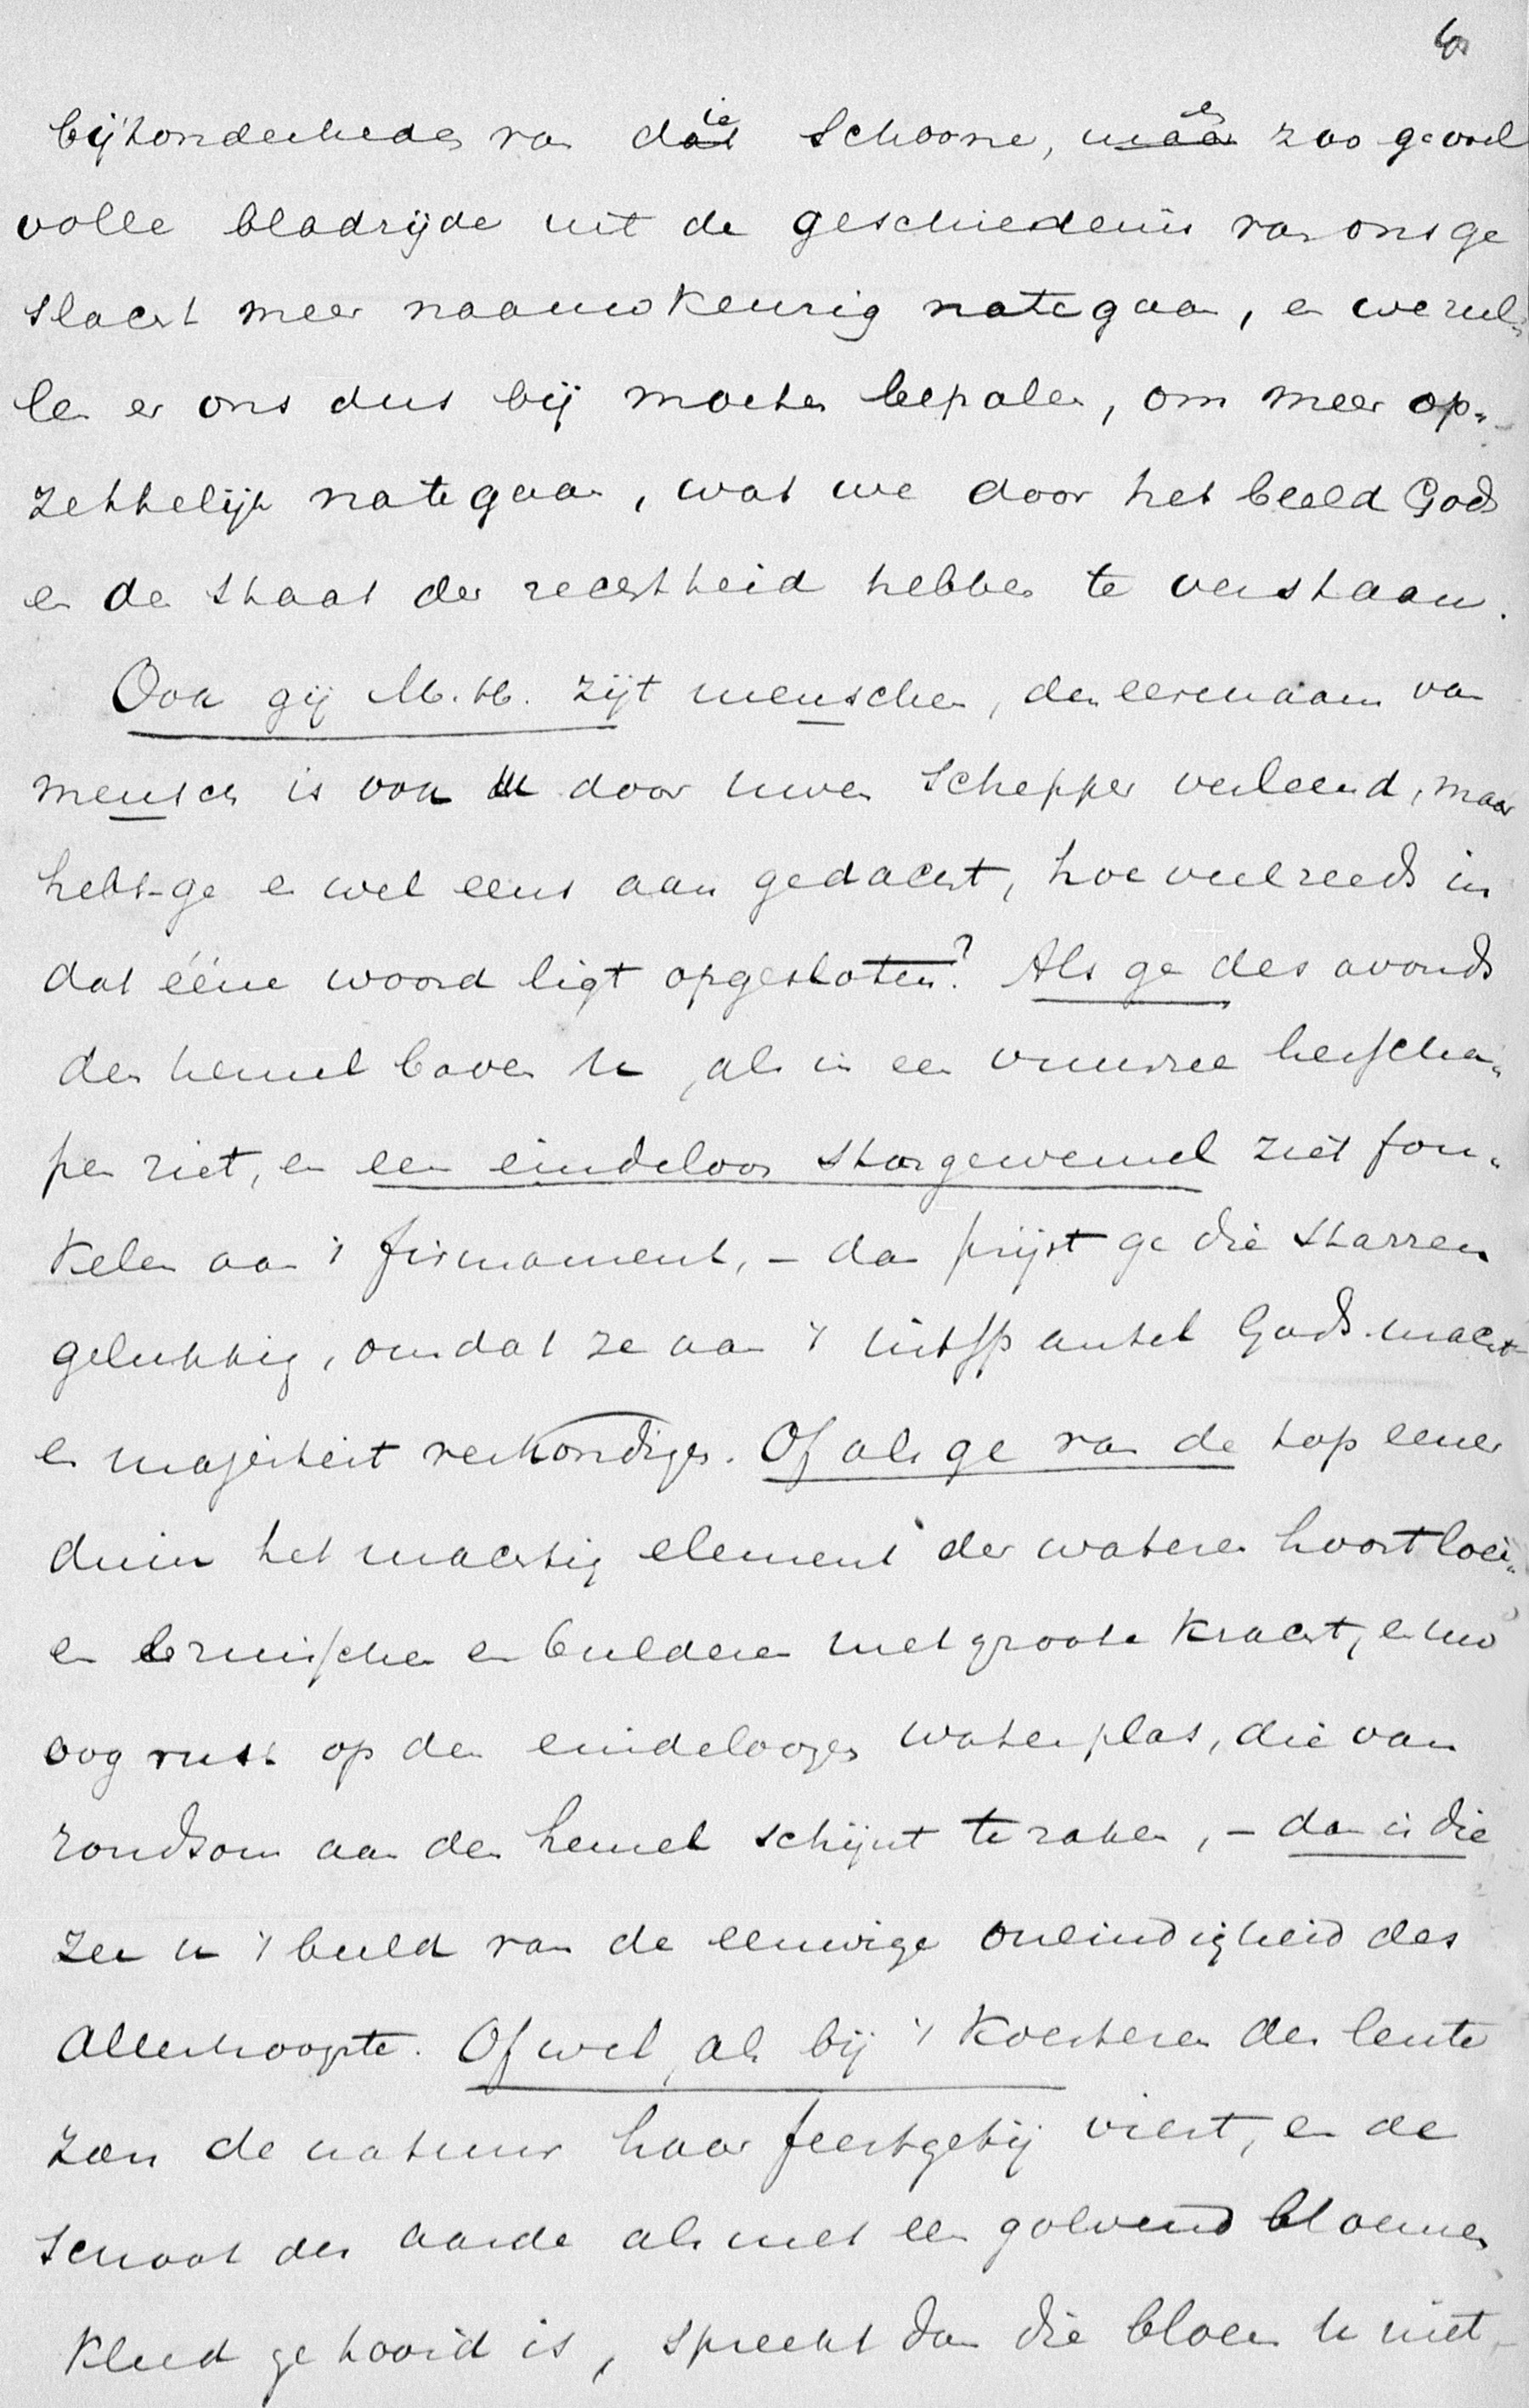 6
bijzonderheden van die schoone, en zoo gevoel
volle bladzijde uit de geschiedenis van ons ge
slacht meer naauwkeurig nategaan, en we zul„
len er ons dus bij moeten bepalen, om meer op„
zettelijk nategaan, wat we door het beeld Gods
en de staat der rechtheid hebben te verstaan.
Ook gij M.H. zijt menschen, den eernaam van
mensch is ook U door uwen Schepper verleend, maar
hebt-ge er wel eens aan gedacht, hoe veel reeds in
dat ééne woord ligt opgesloten? Als ge des avonds
den hemel boven U, als in een vuurzee herscha„
pen ziet, en een eindeloos stargewemel ziet fon„
kelen aan 't firmament, – dan prijst ge die starren
gelukkig, omdat ze aan 't uitspansel Gods macht
en majesteit verkondigen. Of als ge van de top eener
duin het machtig element der wateren hoort loei„
en bruischen en bulderen met groote kracht, en uw
oog rust op den eindeloozen waterplas, die van
rondsom aan den hemel schijnt te raken, – dan is die
zee u 't beeld van de eeuwige oneindigheid des
Allerhoogste. Of wel, als bij 't koesteren der lente
zon de natuur haar feestgetij viert, en de
schoot der aarde als met een golvend bloemen
kleed getooid is, spreekt dan die bloem U niet